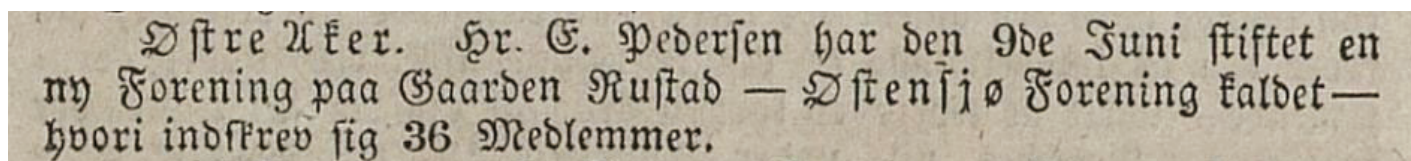 Østre Aker. Hr. E. Pedersen har den 9de Juni stiftet en
ny Forening paa Gaarden Rustad — Østensjø Forening kaldet —
hvori indskrev sig 36 Medlemmer.